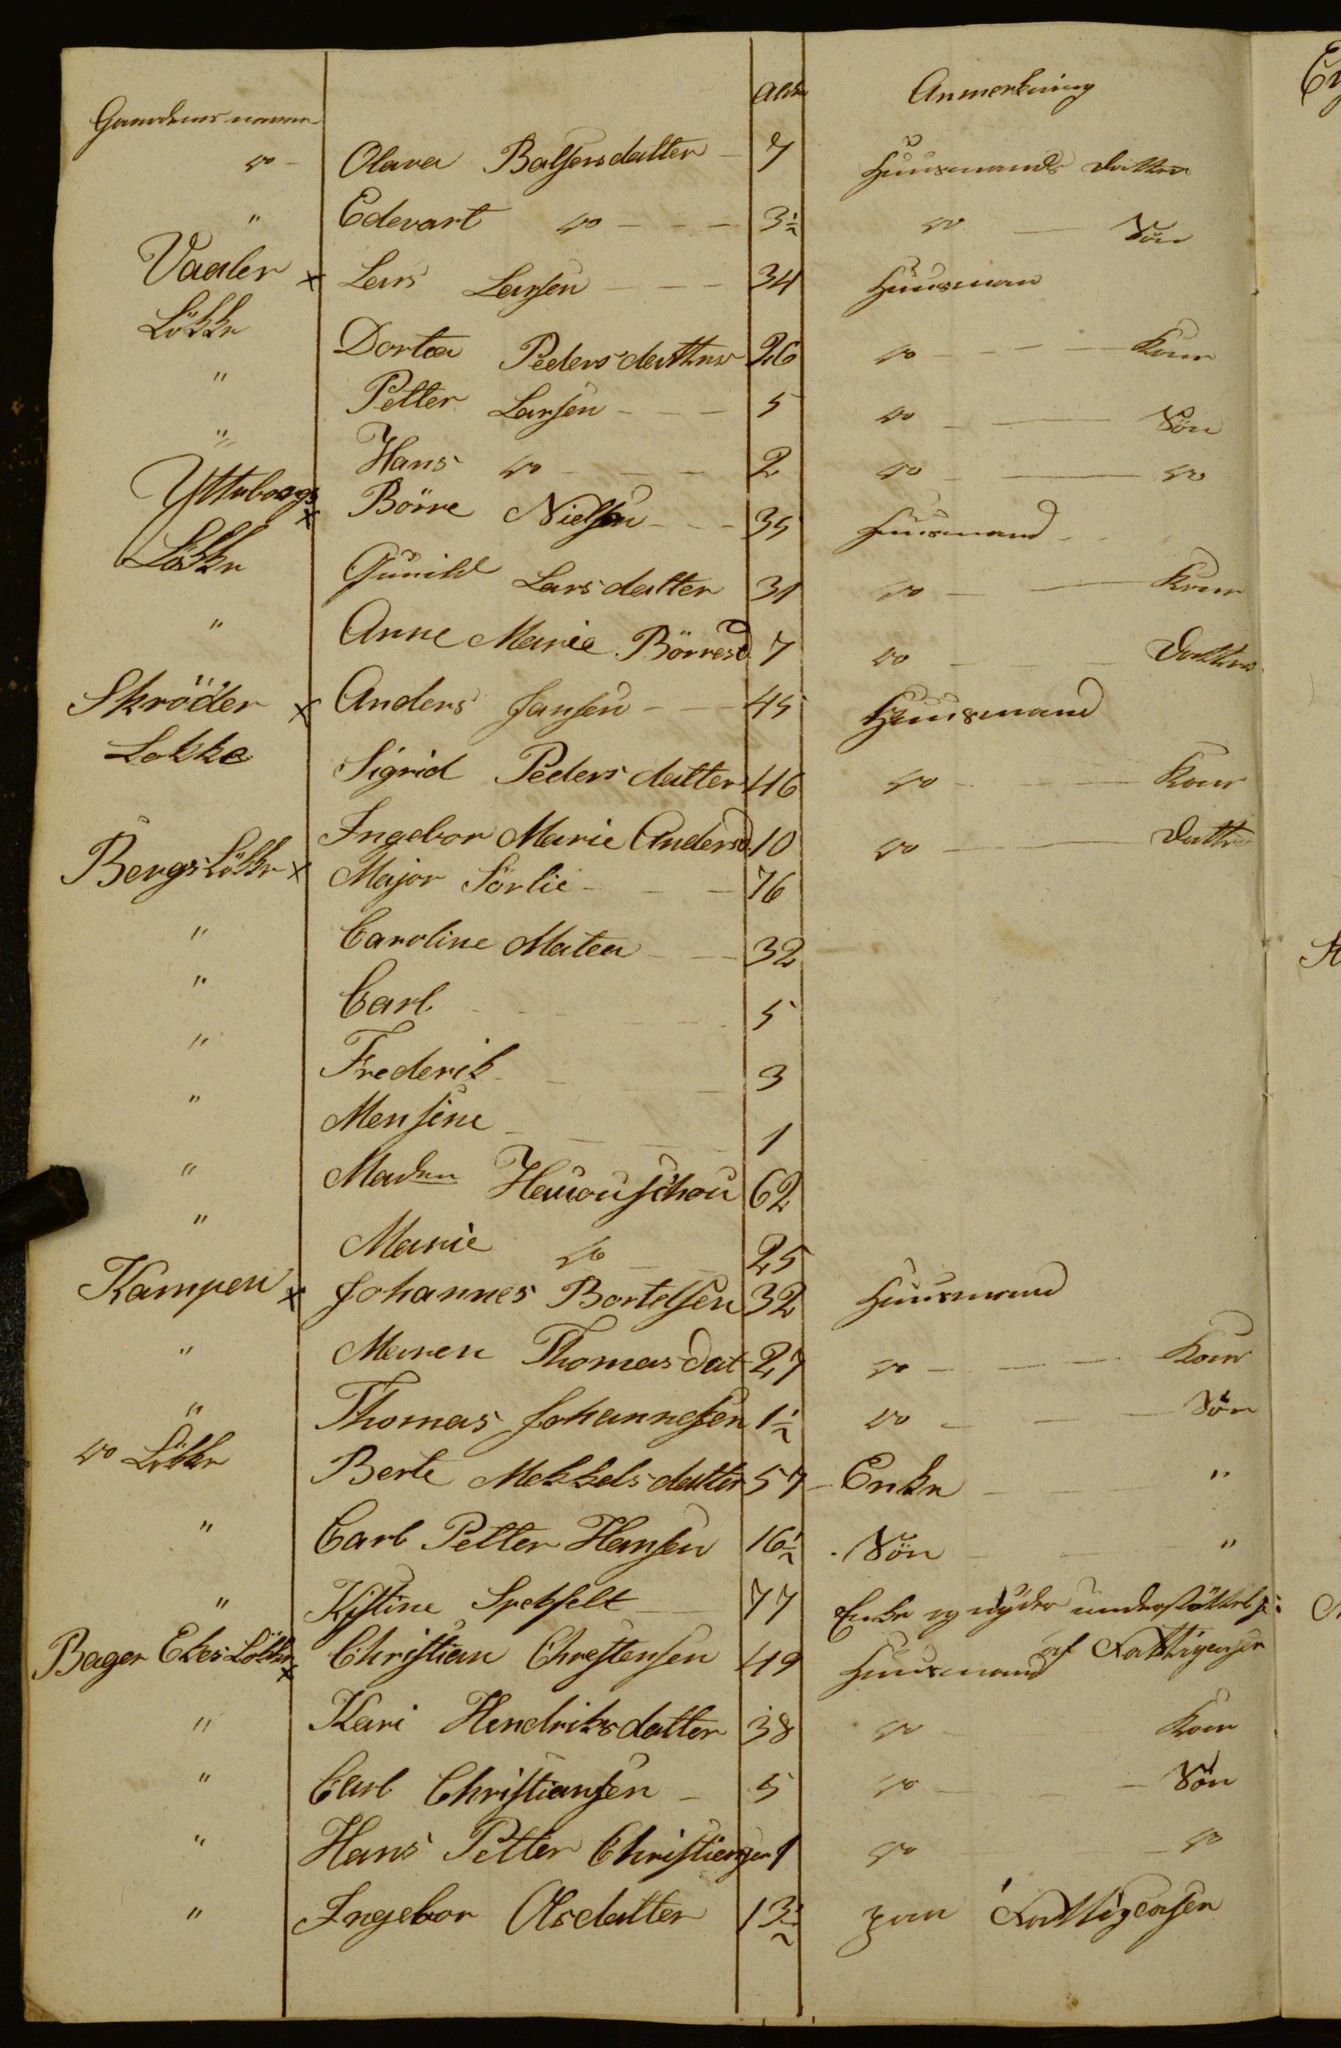 Gaardens navne Alder Anmerkning
do - Olava Balsersdatter - 7 Huusmands Datter
" Edevart do - - - 3½ do - Sön
Vaaler x Lars Larsen - - - 34 Huusman
Lökke Dortea Pedersdatter 26 do - - - Kone
" Petter Larsen - - - 5 do - - Sön
" Hans do - - - 2 do - - do
Ytteborgs x Börre Nielsen - - 35 Huusmand
Lökke Gunild Larsdatter 31 do - - Kone
" Anne Marie Börresd 7 do - - Datter
Skröder x Anders Jansen - - 45 Huusmand
Løkke Sigrid Pedersdatter 46 do - - Kone
Ingebor Marie Andersd. 10 do - - Datter
Bergs Lökke x Major Sörlie - - - 76
" Caroline Matea - - 32
" Carl - - - 5
" Frederik - - - 3
" Mensine - - - 1
" Madm 62
" Marie do - - 25
Kampen x Johannes Bertelsen 32 Huusmand
" Maren Thomasdat 27 do - - - Kone
" Thomas Johannesen 1½ do - - - Sön
do Lökke Berte Mekkelsdatter 57 - Enke - - "
" Carl Petter Hansen 16½ . Sön - - "
" Kistine 77 Enke og nyder understöttelse
af Fattigcasen
Bager Ekes Lökke x Christian Christensen 49 Huusmand
" Kari Hendriksdatter 38 do - Kone
" Carl Christiansen - 5 do - - Sön
" Hans Petter Christiansen 1 do - do
" Ingebor Olsdatter 13½ paa Fattigcasen